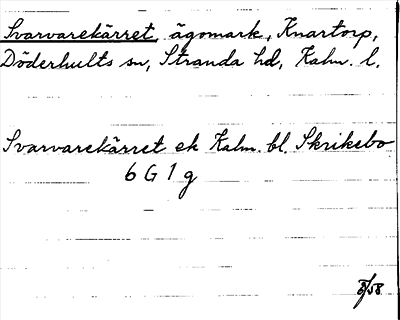 Svarvarekärret, ägomark, Knartorp,
Döderhults sn, Stranda hd, Kalm. l.
Svarvarekärret ek Kalm. bl. Skriksbo
6 G 1 g